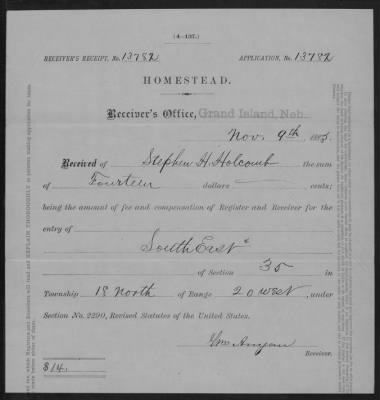 (4—137.)
RECEIVER'S RECEIPT, No. 13782 APPLICATION, No. 13782
HOMESTEAD.
Receiver's Office, Grand Island, Neb.
Nov. 9th 1885.
Received of Stephen H. Holcomb the sum
of Fourteen dollars cents;
being the amount of fee and compensation of Register and Receiver for the
entry of
South East
of Section 35 in
Township 18 North of Range 20 West, under
Section No. 2290, Revised Statutes of the United States.
Wm Anyan
Receiver.
$14.